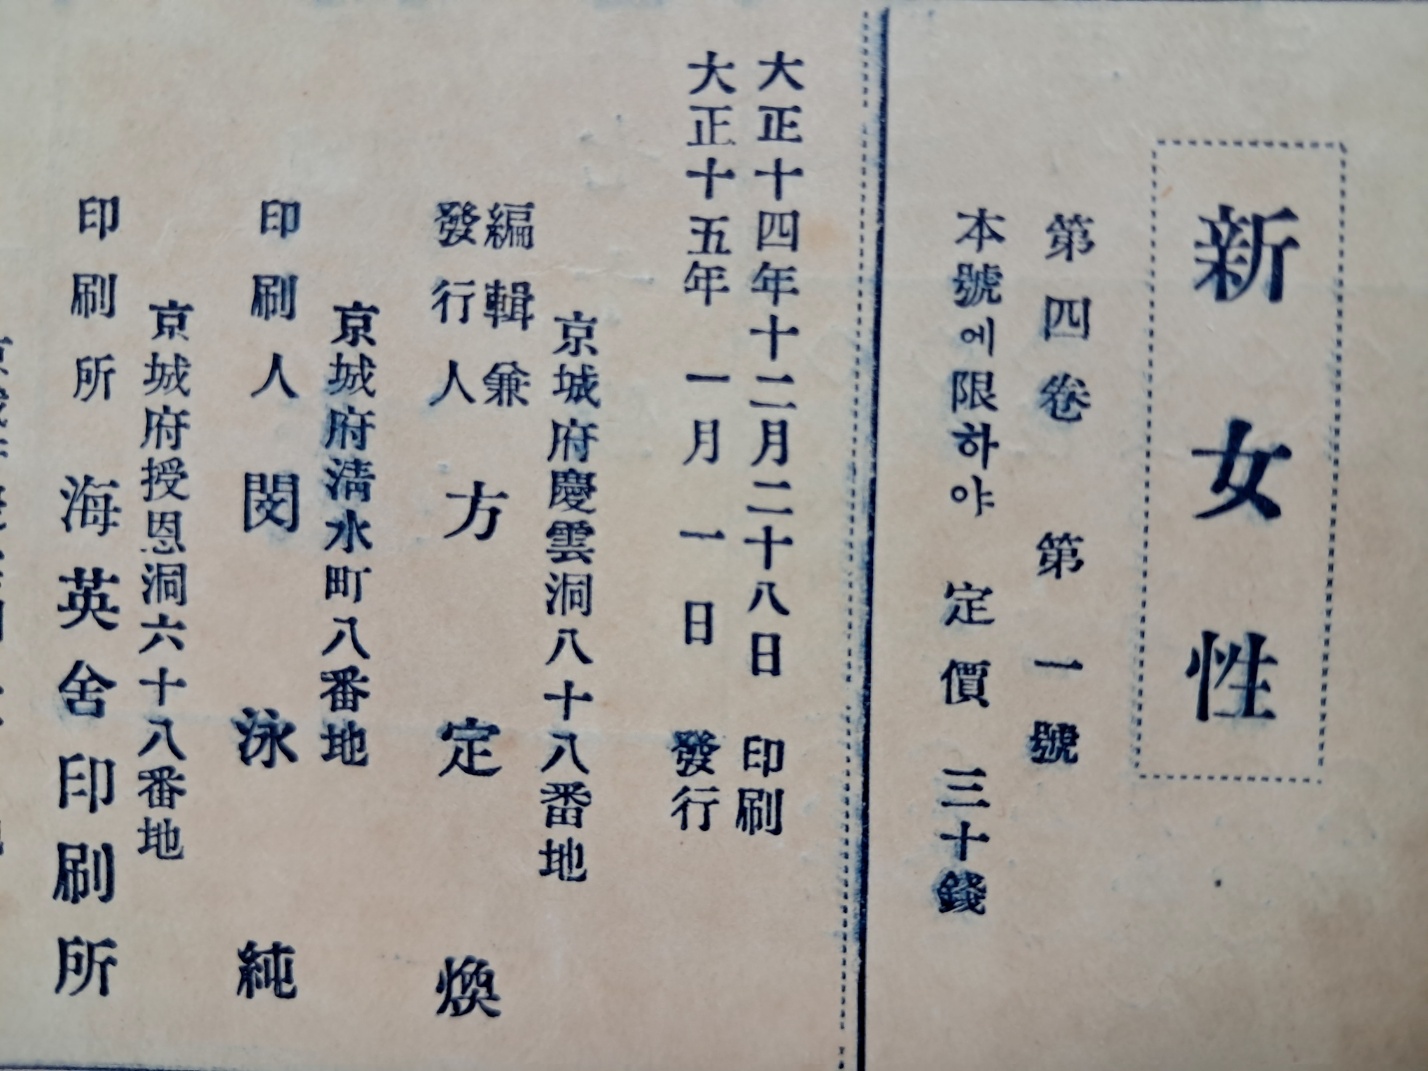 新女性
第四卷 第一號
本號에限하야 定價 三十錢
大正十四年十二月二十八日 印刷
大正十五年 一月 一日 發行
京城府慶雲洞八十八番地
編輯兼
發行人 方定煥
京城府淸水町八番地
印刷人 閔泳純
京城府授恩洞六十八番地
印刷所 海英舍印刷所